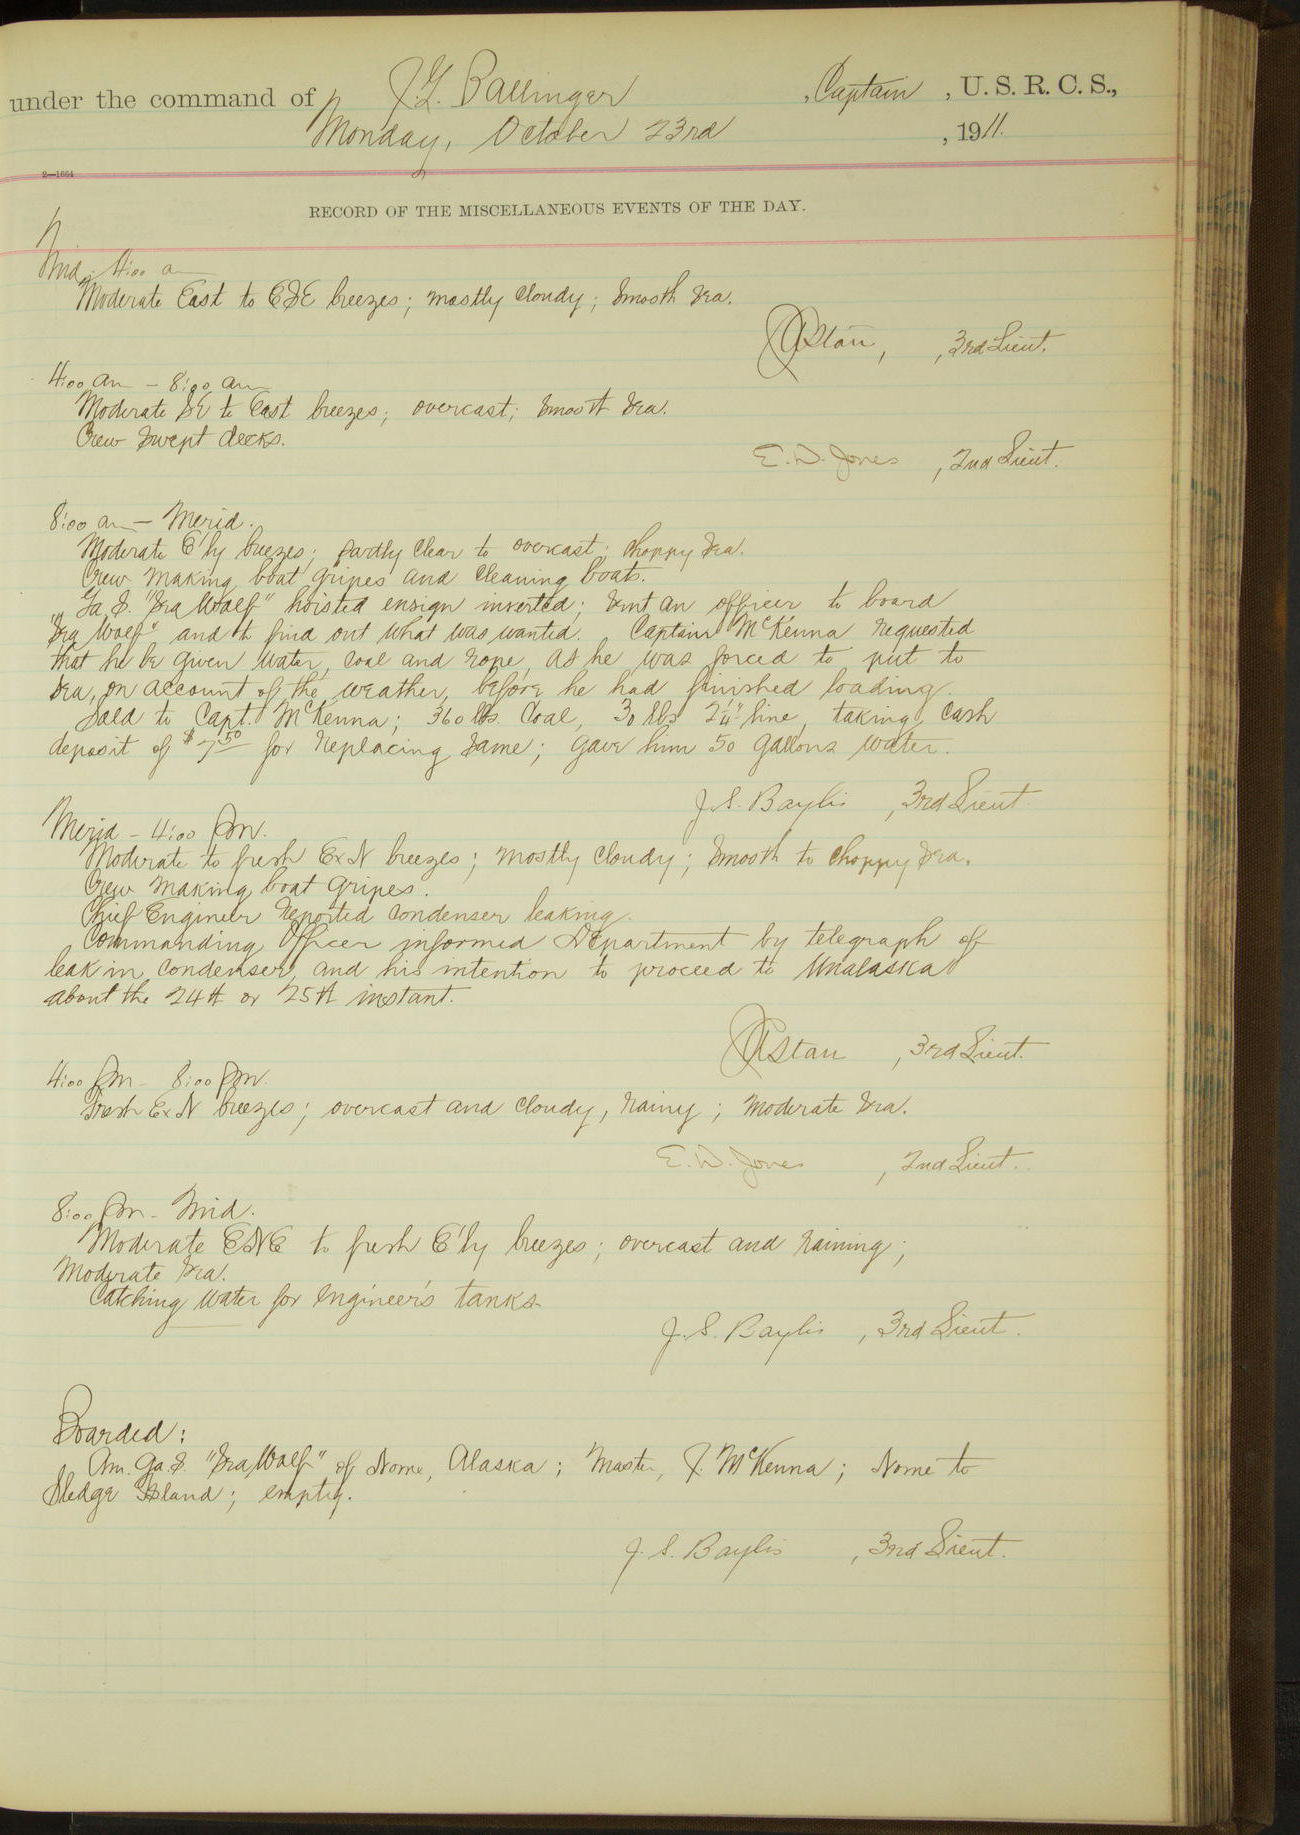 under the command of J. G. Ballinger, Captain, U. S. R. C. S.,
Monday, October 23rd, 1911.
2—1664
RECORD OF THE MISCELLANEOUS EVENTS OF THE DAY.
Mid. 4:00 am
Moderate East to ESE breezes; mostly cloudy; smooth sea.
, 3rd Lieut.
4:00 am - 8:00 am
Moderate SE to East breezes; overcast; smooth sea.
Crew swept decks.
E. D. Jones, 2nd Lieut.
8:00 am - Merid.
Moderate E'ly breezes; partly clear to overcast; choppy sea.
Crew making boat gripes and cleaning boats.
Ga. S. "Sea Wolf" hoisted ensign inverted; sent an officer to board
"Sea Wolf" and to find out what was wanted. Captain McKenna requested
that he be given water, coal and rope, as he was forced to put to
sea, on account of the weather, before he had finished loading.
Sold to Capt. McKenna; 360 lbs. coal, 30 lbs 2¼" line, taking cash
deposit of $7.50 for replacing same; gave him 50 gallons water.
J. S. Baylis, 3rd Lieut.
Merid - 4:00 pm.
Moderate to fresh ExN breezes; mostly cloudy; smooth to choppy sea.
Crew making boat gripes.
Chief Engineer reported condenser leaking.
Commanding Officer informed Department by telegraph of
leak in condenser, and his intention to proceed to Unalaska
about the 24th or 25th instant.
, 3rd Lieut.
4:00 pm - 8:00 pm.
Fresh ExN breezes; overcast and cloudy, rainy; moderate sea.
E. D. Jones, 2nd Lieut.
8:00 pm - Mid.
Moderate ENE to fresh E'ly breezes; overcast and raining;
moderate sea.
Catching water for Engineer's tanks.
J. S. Baylis, 3rd Lieut.
Boarded:
Am. Ga. S. "Sea Wolf" of Nome, Alaska; Master, J. McKenna; Nome to
Sledge Island; empty.
J. S. Baylis, 3rd Lieut.